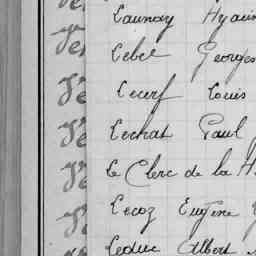 Launay Hyacin
Lebel Georges
Lecerf Louis
Lechat Paul
Le Clerc de la H
Lecoz Eugène
Leduc Albert